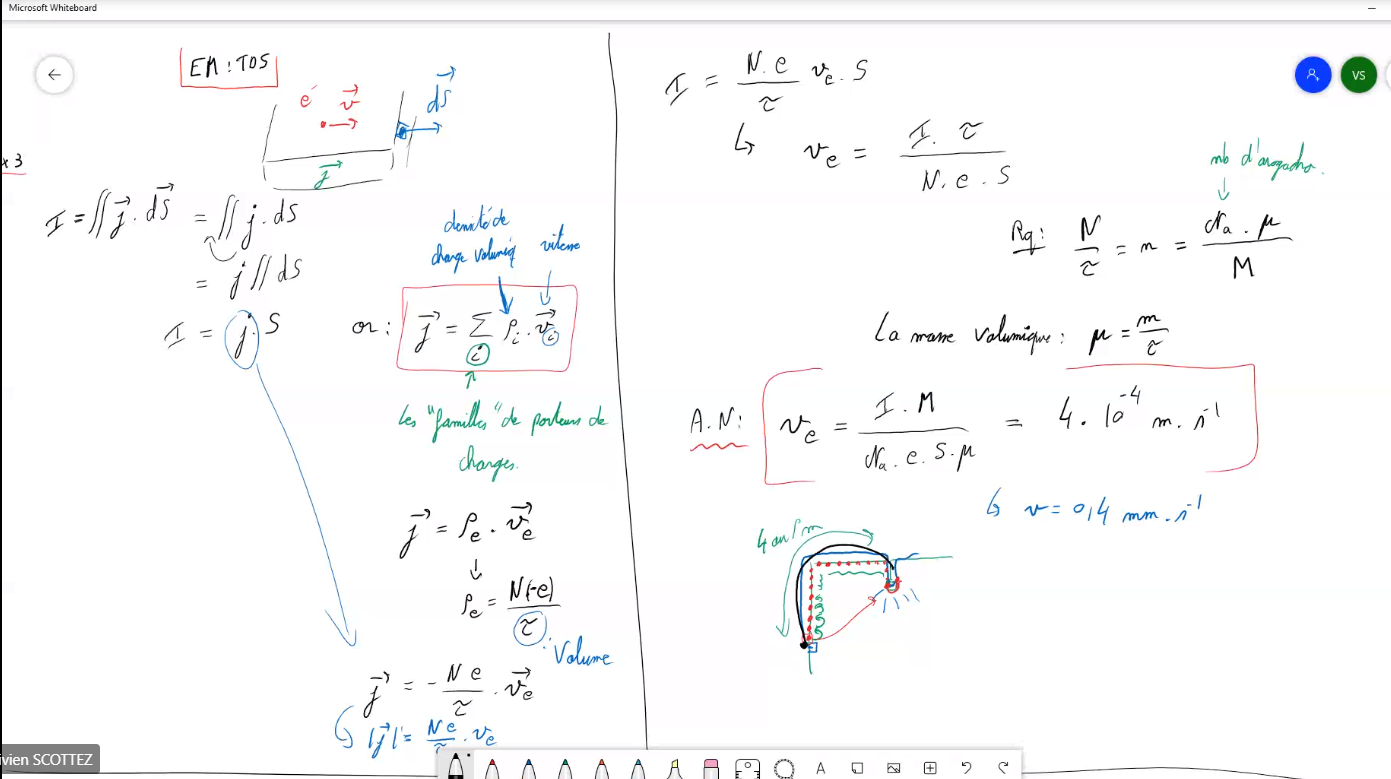 Microsoft Whiteboard
EM : TD5
e⁻ v⃗ dS⃗
j⃗
x 3
I = ∬ j⃗ . dS⃗ = ∬ j . dS
= j ∬ dS
I = j . S
densité de
charge volumiq vitesse
or : j⃗ = Σ_i ρ_i . v⃗_i
Les "familles" de porteurs de
charges.
j⃗ = ρ_e . v⃗_e
ρ_e = N(-e) / τ
: Volume
j⃗ = - N e / τ . v⃗_e
↳ |j⃗| = N e / τ . v_e
I = N . e / τ v_e . S
↳ v_e = I . τ / N . e . S
nb d'avogadro.
Rq : N / τ = n = N_a . μ / M
La masse volumique : μ = m / τ
A.N : v_e = I . M / N_a . e . S . μ = 4 . 10⁻⁴ m . s⁻¹
↳ v = 0,4 mm . s⁻¹
VS
ivien SCOTTEZ
A